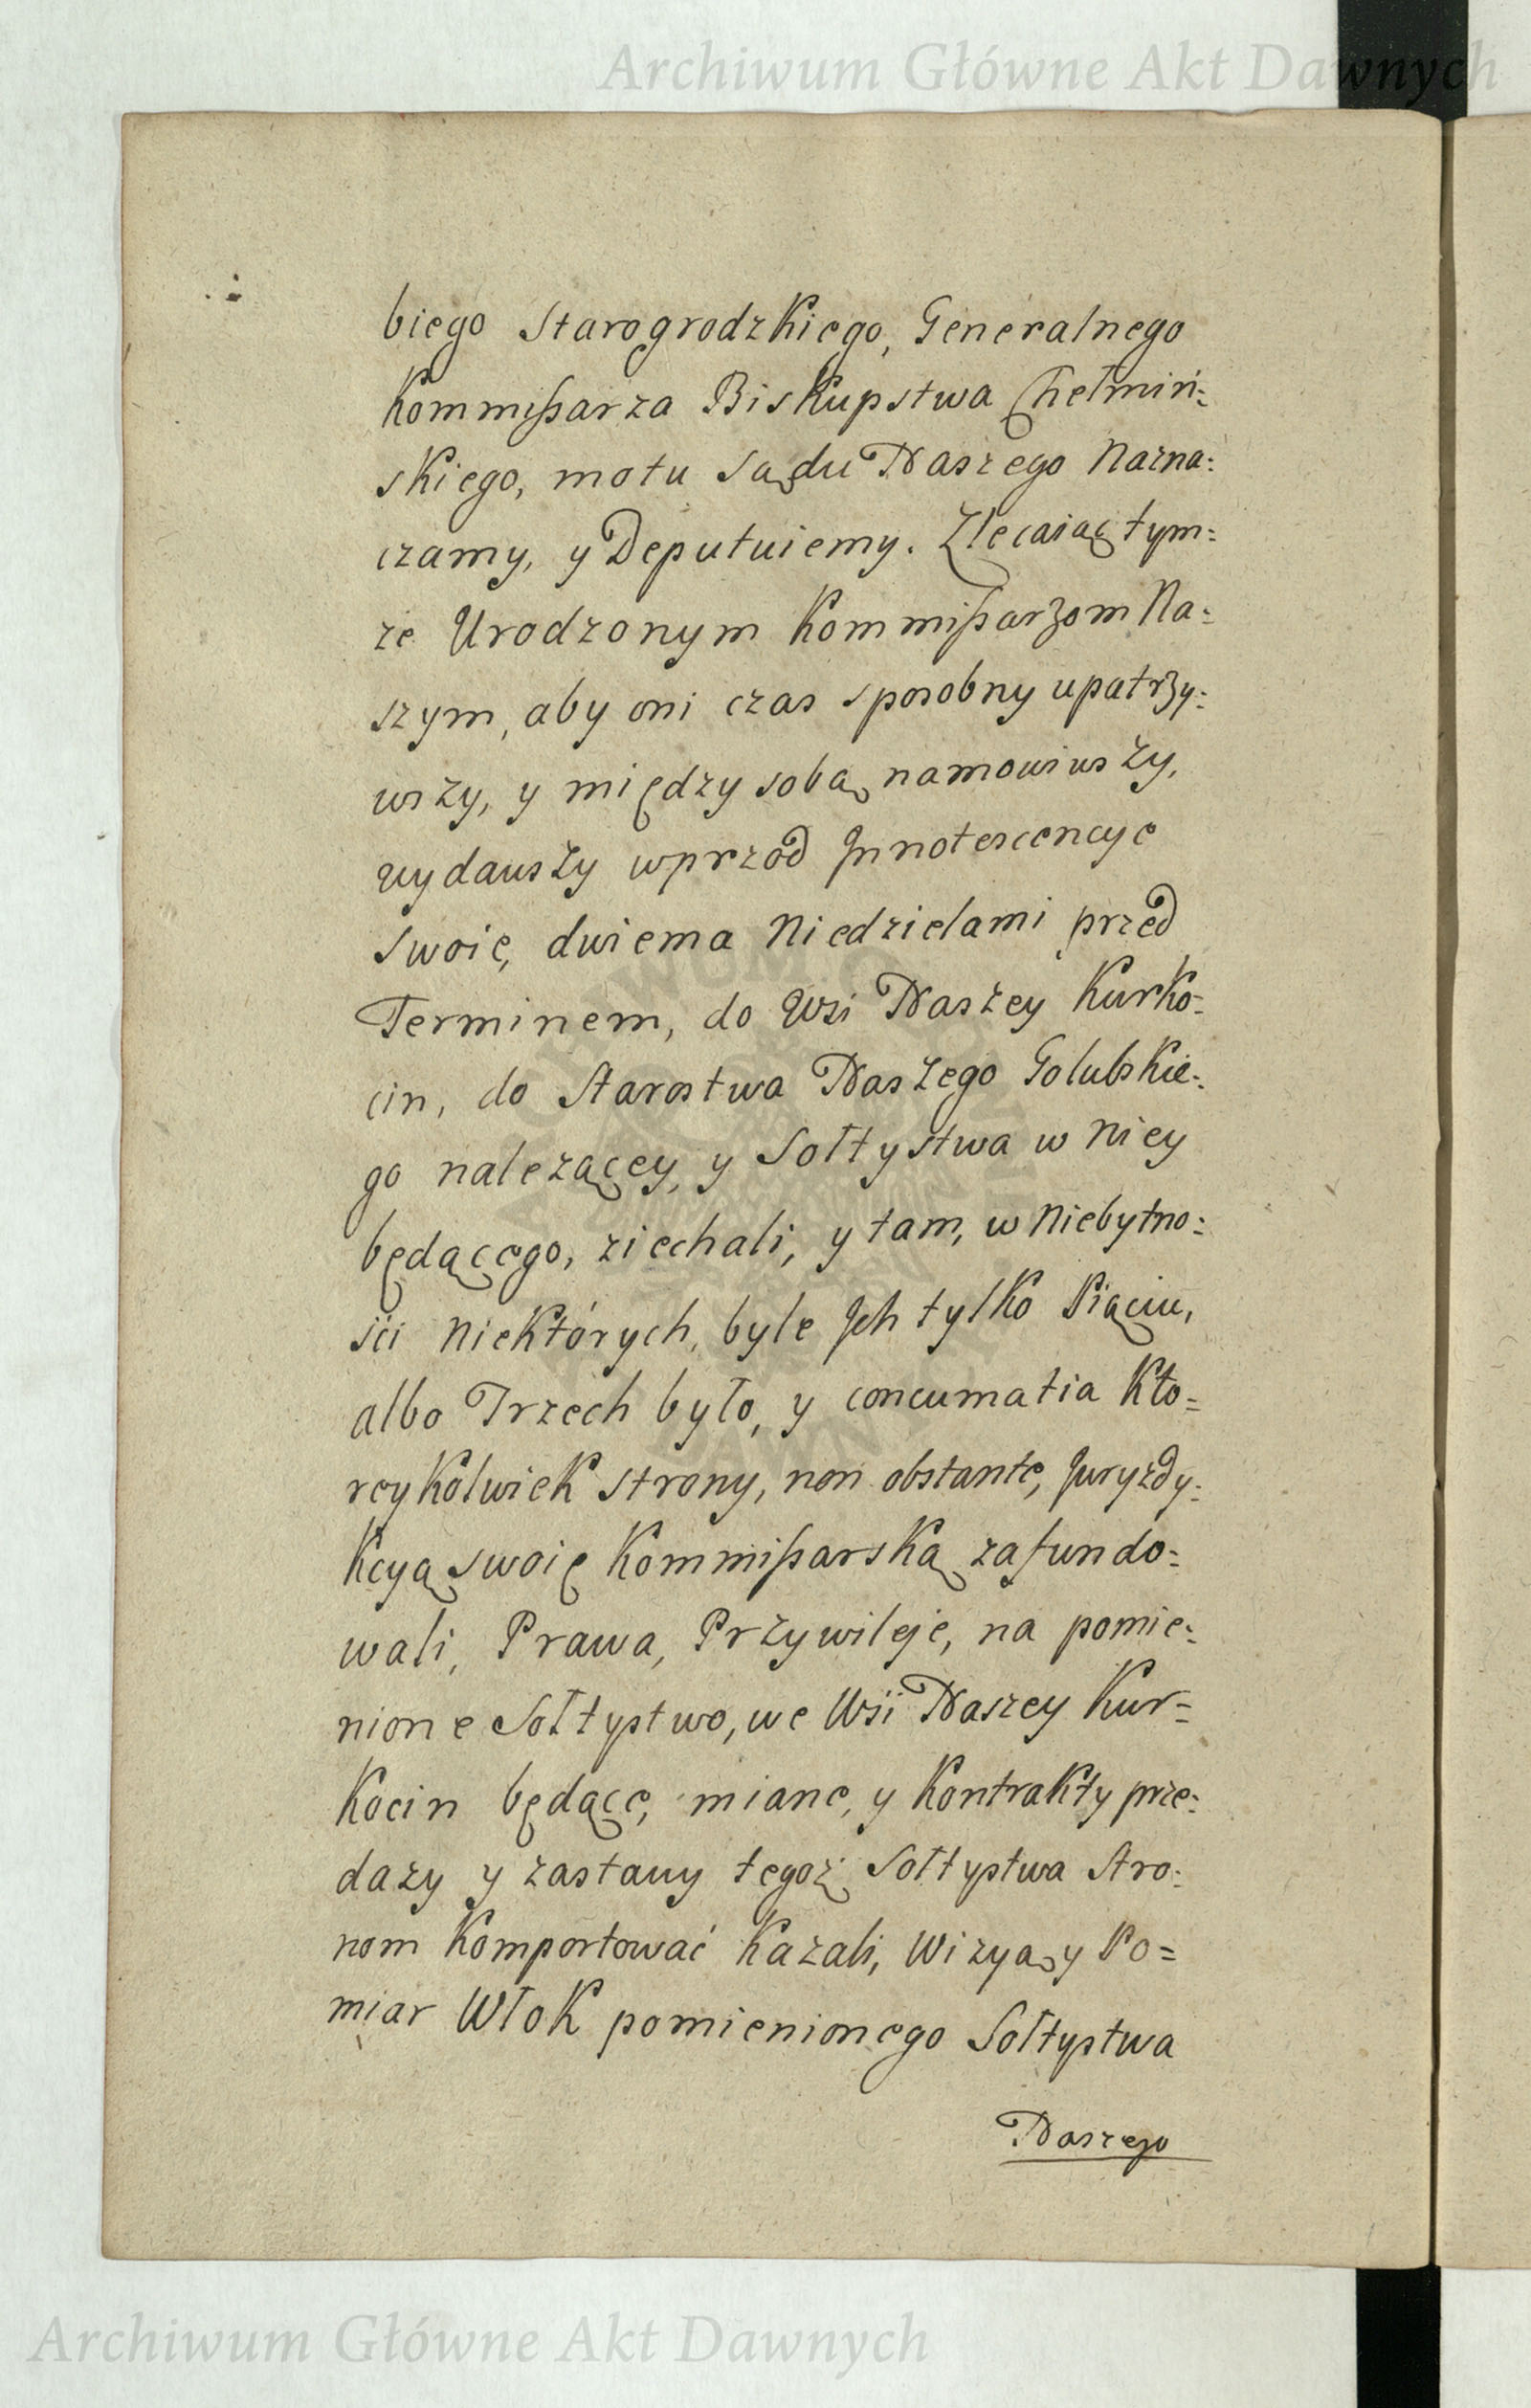 Archiwum Główne Akt Dawnych
biego Starogrodzkiego, Generalnego
Kommißarza Biskupstwa Chełmiń:
skiego, motu Sądu Naszego Nazna:
czamy, y Deputuiemy. Zlecaiąc tym:
ze Urodzonym Kommißarzom Na:
szym, aby oni czas sposobny upatrzy:
wszy, y między sobą namowiwszy,
wydawszy wprzod Innotescencye
swoie, dwiema Niedzielami przed
Terminem, do Wsi Naszey Kurko:
cin, do Starostwa Naszego Golubskie:
go nalezącey, y Sołtystwa w Niey
będącego, ziechali, y tam, w Niebytno:
ści Niektórych, byle Ich tylko Piąciu,
albo Trzech było, y concumatia Kto=
reykolwiek strony, non obstante, Juryzdy:
Kcyą swoię Kommißarską zafundo=
wali, Prawa, Przywileje, na pomie:
nione Sołtystwo, we Wsi Naszey Kur=
Kocin będące, miane, y Kontrakty prze:
dazy y zastawy tegoż Sołtystwa Stro:
nom Komportować Kazali, Wizyą y Po=
miar Włok pomienionego Sołtystwa
Naszego
Archiwum Główne Akt Dawnych